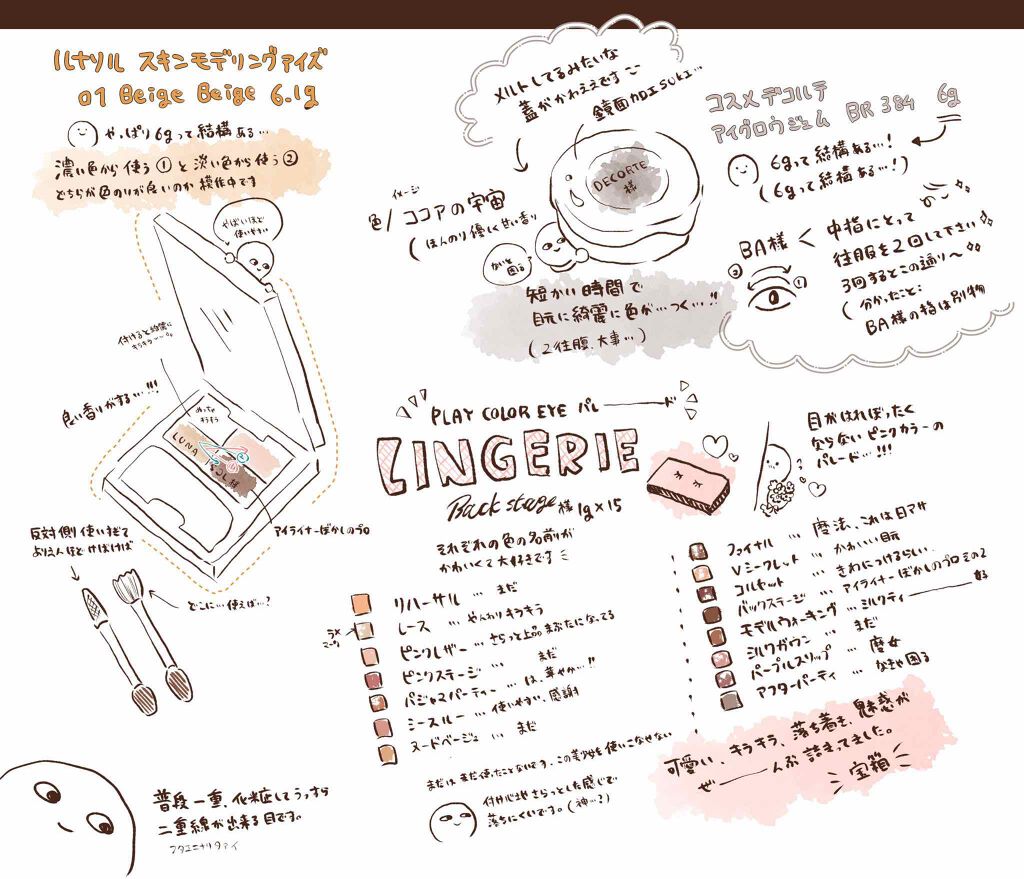 ルナソル スキンモデリングアイズ
01 Beige Beige 6.1g
やっぱり6gって結構ある…
濃い色から使う①と淡い色から使う②
どちらが色のりが良いのか模作中です
やばいほど
使いやすい
付けると綺麗に
キラキラ〜〜
良い香りがする…!!!
めっちゃ
キラキラ
LUNA
SOL様
②
①
反対側使いすぎて
アイライナーぼかしのプロ
どこに…使えば…?
普段一重、化粧してうっすら
二重線が出来る目です。
メルトしてるみたいな
蓋がかわええです
鏡面加工SUKI…
DECORTE
様
イメージ
色/ココアの宇宙
(ほんのり優しく甘い香り
ないと
困る
短かい時間で
目元に綺麗に色が…つく…!!
(2往腹、大事…)
コスメデコルテ
アイグロウジェム BR384 6g
6gって結構ある…!
(6gって結構ある…!)
BA様 <
中指にとって
往服を2回して下さい
3回するとこの通り〜
(分かったこと:
BA様の指は別物
②
①
PLAY COLOR EYE パレ―――ド
LINGERIE
Back stage様 1g×15
それぞれの色の名前が
かわいくて大好きです
目がはれぼったく
ならないピンクカラーの
パレード…!!!
リハーサル … まだ
ラメ
レース … やんわりキラキラ
ピンクレザー … さらっと上品 まぶたになってる
ピンクステージ … まだ
パジャマパーティー … は、華やか…!!
シースルー … 使いやすい、感謝
ヌードベージュ … まだ
ファイナル … 魔法、これは目アサ
Vシークレット … かわいい目元
コルセット … きわにつけるらしい
バックステージ … アイライナーぼかしのプロその2
モデルウォーキング … ミルクティ―――好
ミルクガウン … まだ
パープルスリップ … 魔女
アフターパーティ … なきゃ困る
まだは、まだ使ったことないです、この美少女を使いこなせない
付け心地さらっとした感じで
落ちにくいです。(神…?)
可愛い、キラキラ、落ち着き、魅惑が
ぜ―――んぶ詰まってました。
宝箱